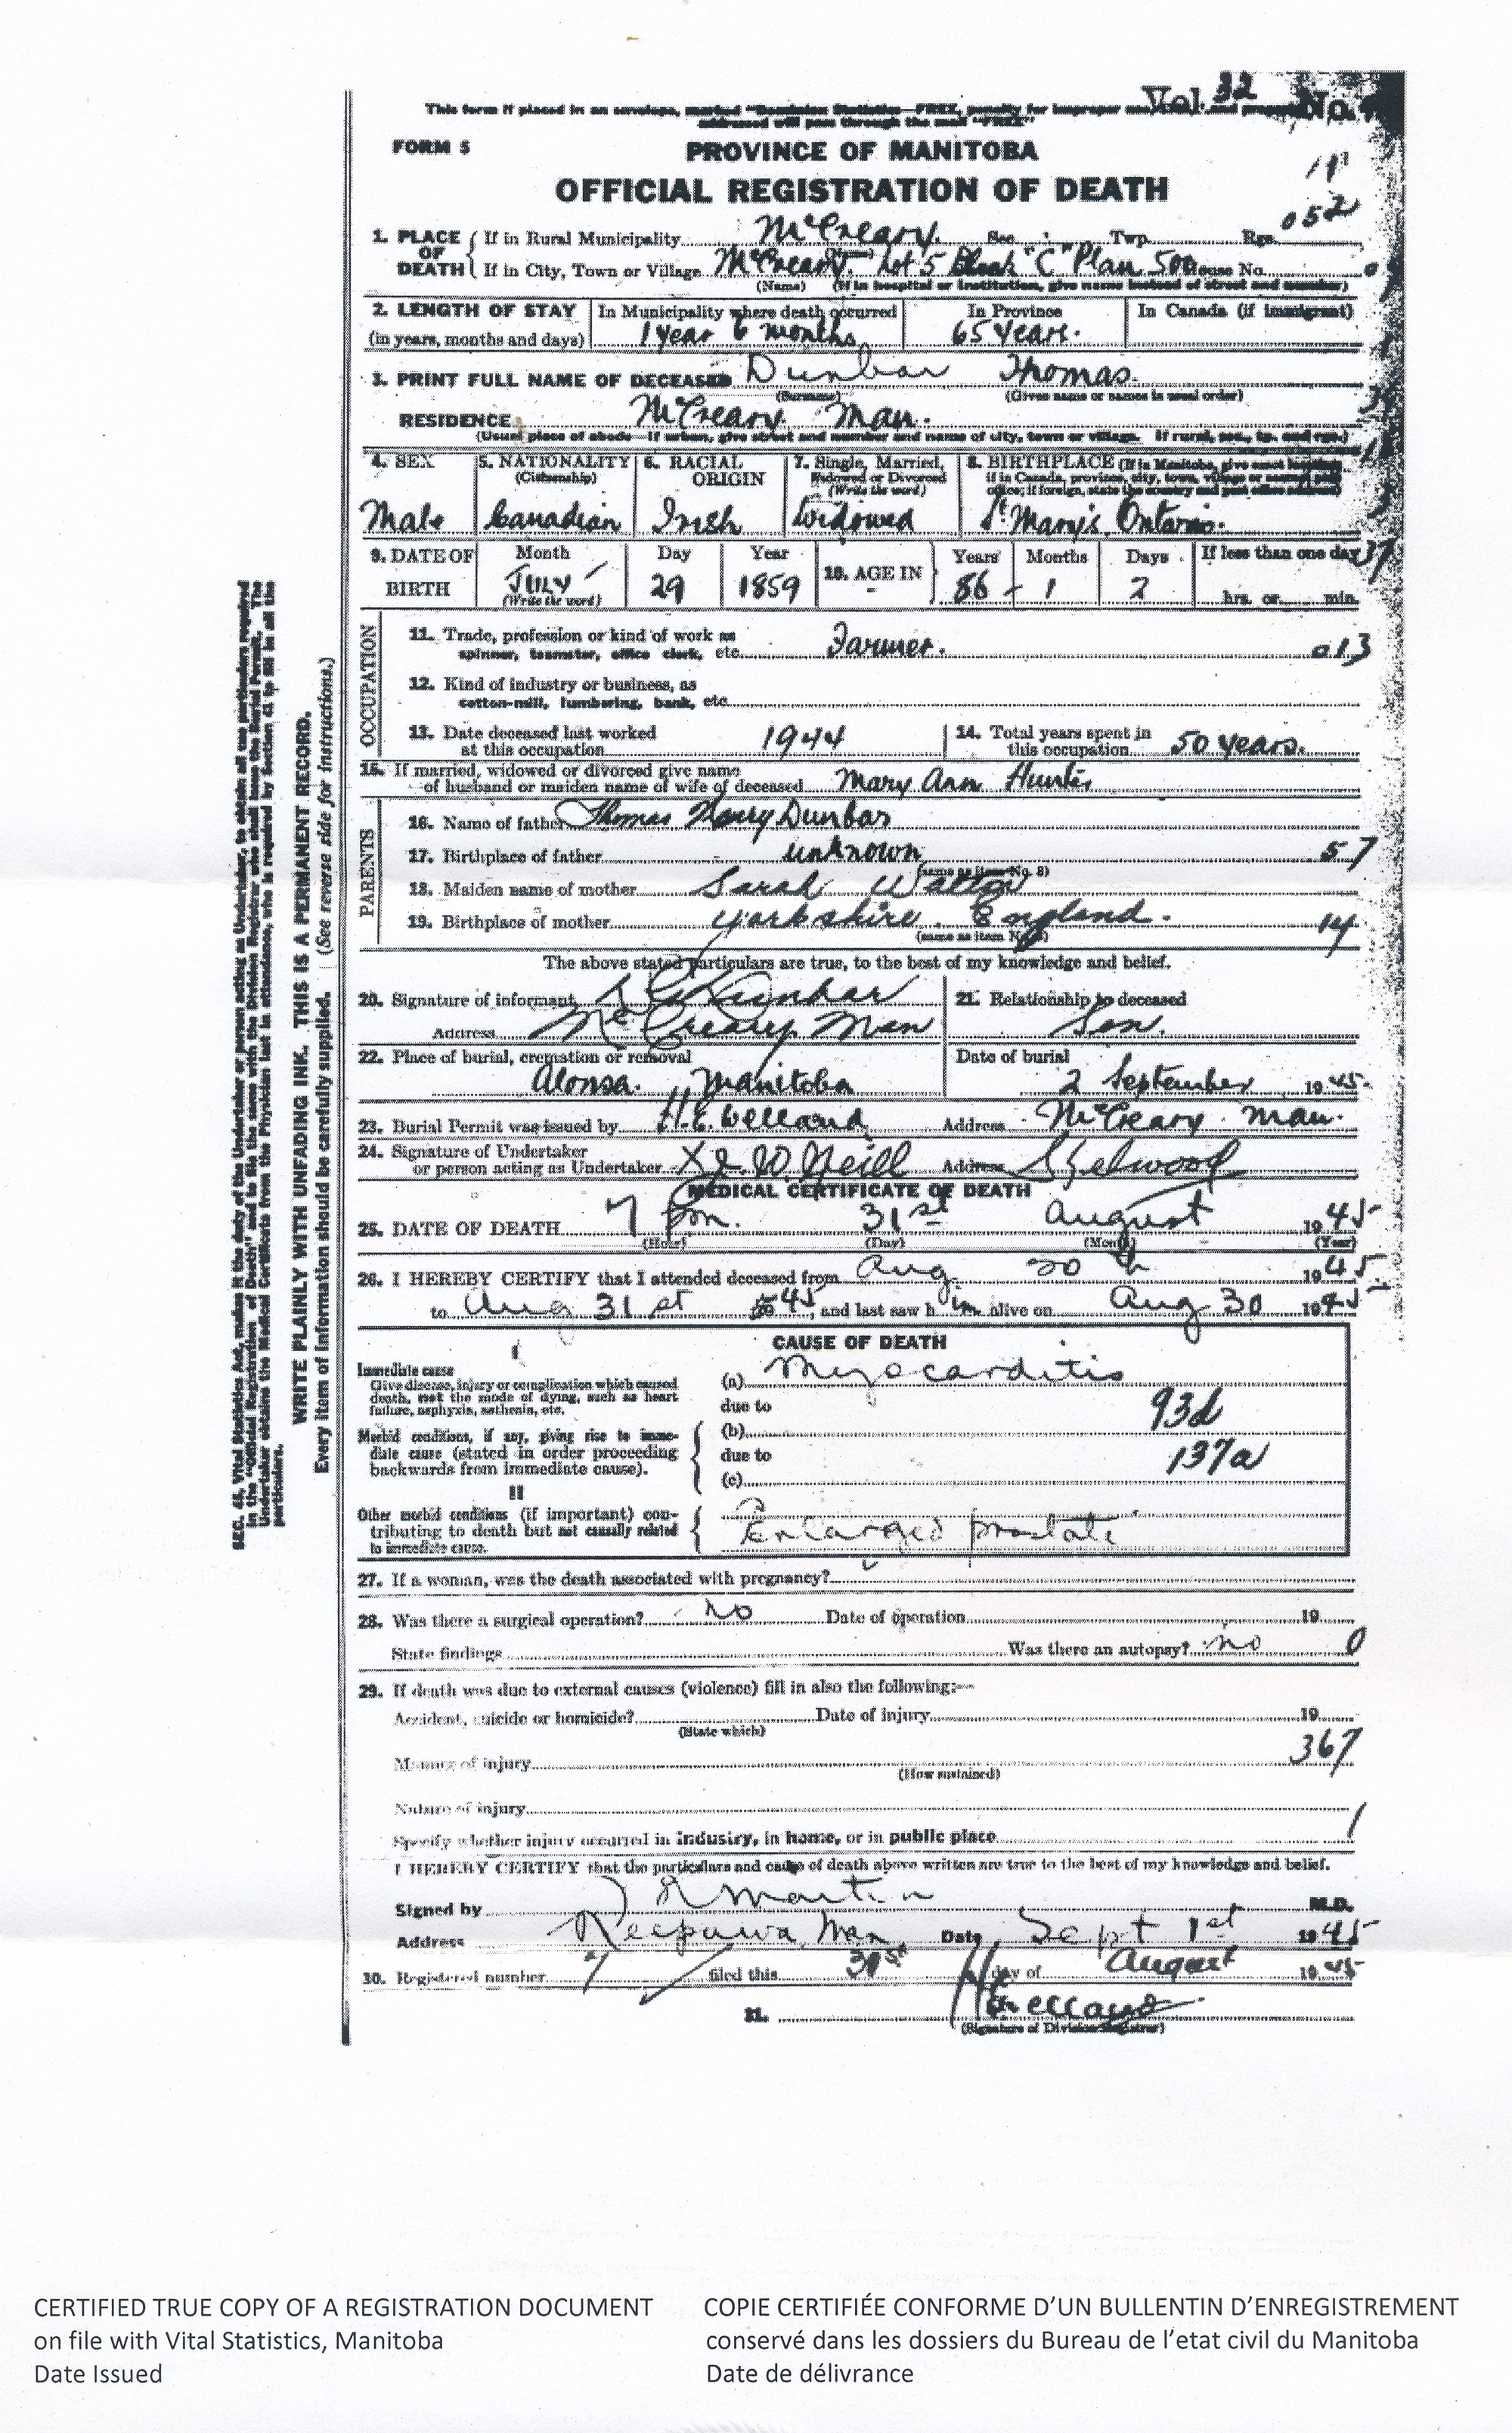 Vol. 32 No.
This form if placed in an envelope, marked "Dominion Statistics—FREE, penalty for improper use" and properly
addressed will pass through the mail "FREE"
FORM 5
PROVINCE OF MANITOBA
OFFICIAL REGISTRATION OF DEATH
052
1. PLACE OF DEATH { If in Rural Municipality McCreary. Sec. Twp. Rge.
If in City, Town or Village McCreary. Lot 5 Block "C" Plan 500 House No.
(Name) (If in hospital or institution, give name instead of street and number)
2. LENGTH OF STAY In Municipality where death occurred In Province In Canada (if immigrant)
(in years, months and days) 1 year 6 months 65 years.
3. PRINT FULL NAME OF DECEASED Dunbar Thomas.
(Surname) (Given name or names in usual order)
RESIDENCE McCreary. Man.
(Usual place of abode—if urban, give street and number and name of city, town or village. If rural, sec., tp. and rge.)
4. SEX 5. NATIONALITY (Citizenship) 6. RACIAL ORIGIN 7. Single, Married, Widowed or Divorced (Write the word) 8. BIRTHPLACE (If in Manitoba, give exact location;
if in Canada, province, city, town, village or
office; if foreign, state the country and post office address)
Male Canadian Irish Widowed St Mary's, Ontario.
9. DATE OF BIRTH Month Day Year 10. AGE IN } Years Months Days If less than one day
JULY 29 1859 86 - 1 2 hrs. or min.
(Write the word)
37
OCCUPATION
11. Trade, profession or kind of work as
spinner, teamster, office clerk, etc. Farmer. 013
12. Kind of industry or business, as
cotton-mill, lumbering, bank, etc.
13. Date deceased last worked
at this occupation 1944
14. Total years spent in
this occupation 50 years.
15. If married, widowed or divorced give name
of husband or maiden name of wife of deceased Mary Ann Hunter
PARENTS
16. Name of father Thomas Henry Dunbar
17. Birthplace of father unknown 57
(same as item No. 8)
18. Maiden name of mother Sarah Watton
19. Birthplace of mother Yorkshire. England. 14
(same as item No. 8)
The above stated particulars are true, to the best of my knowledge and belief.
20. Signature of informant Dunbar
Address McCreary Man
21. Relationship to deceased
Son.
22. Place of burial, cremation or removal
Alonsa. Manitoba
Date of burial
2 September 1945.
23. Burial Permit was issued by H.E. Welland Address McCreary. Man.
24. Signature of Undertaker
or person acting as Undertaker X J. W. Neill Address Kelwood
MEDICAL CERTIFICATE OF DEATH
25. DATE OF DEATH 7 pm. 31st August 1945
(Hour) (Day) (Month) (Year)
26. I HEREBY CERTIFY that I attended deceased from Aug. 20th 1945
to Aug 31st 1945, and last saw him alive on Aug 30 1945
CAUSE OF DEATH
I
Immediate cause
Give disease, injury or complication which caused
death, not the mode of dying, such as heart
failure, asphyxia, asthenia, etc.
(a) Myocarditis
due to 93d
Morbid conditions, if any, giving rise to imme-
diate cause (stated in order proceeding
backwards from immediate cause).
(b)
due to 137a
(c)
II
Other morbid conditions (if important) con-
tributing to death but not causally related
to immediate cause.
Enlarged prostate
27. If a woman, was the death associated with pregnancy?
28. Was there a surgical operation? no Date of operation 19
State findings Was there an autopsy? no 0
29. If death was due to external causes (violence) fill in also the following:—
Accident, suicide or homicide? Date of injury 19
(State which)
Manner of injury 367
(How sustained)
Nature of injury
Specify whether injury occurred in industry, in home, or in public place 1
I HEREBY CERTIFY that the particulars and cause of death above written are true to the best of my knowledge and belief.
Signed by Martin M.D.
Address Neepawa, Man Date Sept 1st 1945
30. Registered number 7 filed this 31st day of August 1945
31. H.E. Welland
(Signature of Division Registrar)
SEC. 45, Vital Statistics Act, makes it the duty of the Undertaker or person acting as Undertaker, to obtain all the particulars required
in the "Official Registration of Death" and to file the same with the Division Registrar who shall issue the Burial Permit. The
Undertaker obtains the Medical Certificate from the Physician last in attendance, who is required by Section 41 to fill in all the
particulars.
WRITE PLAINLY WITH UNFADING INK. THIS IS A PERMANENT RECORD.
Every item of information should be carefully supplied. (See reverse side for instructions.)
CERTIFIED TRUE COPY OF A REGISTRATION DOCUMENT
on file with Vital Statistics, Manitoba
Date Issued
COPIE CERTIFIÉE CONFORME D'UN BULLENTIN D'ENREGISTREMENT
conservé dans les dossiers du Bureau de l'etat civil du Manitoba
Date de délivrance